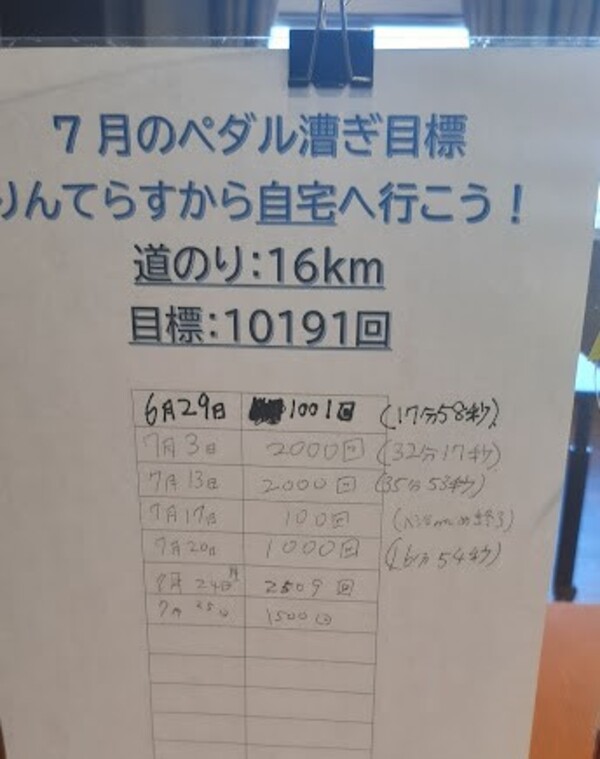 7月のペダル漕ぎ目標
りんてらすから自宅へ行こう！
道のり：16km
目標：10191回
6月29日 1001回 (17分58秒)
7月3日 2000回 (32分17秒)
7月13日 2000回 (35分53秒)
7月17日 100回
7月20日 1000回 (16分54秒)
7月24日 2509回
7月25日 1500回